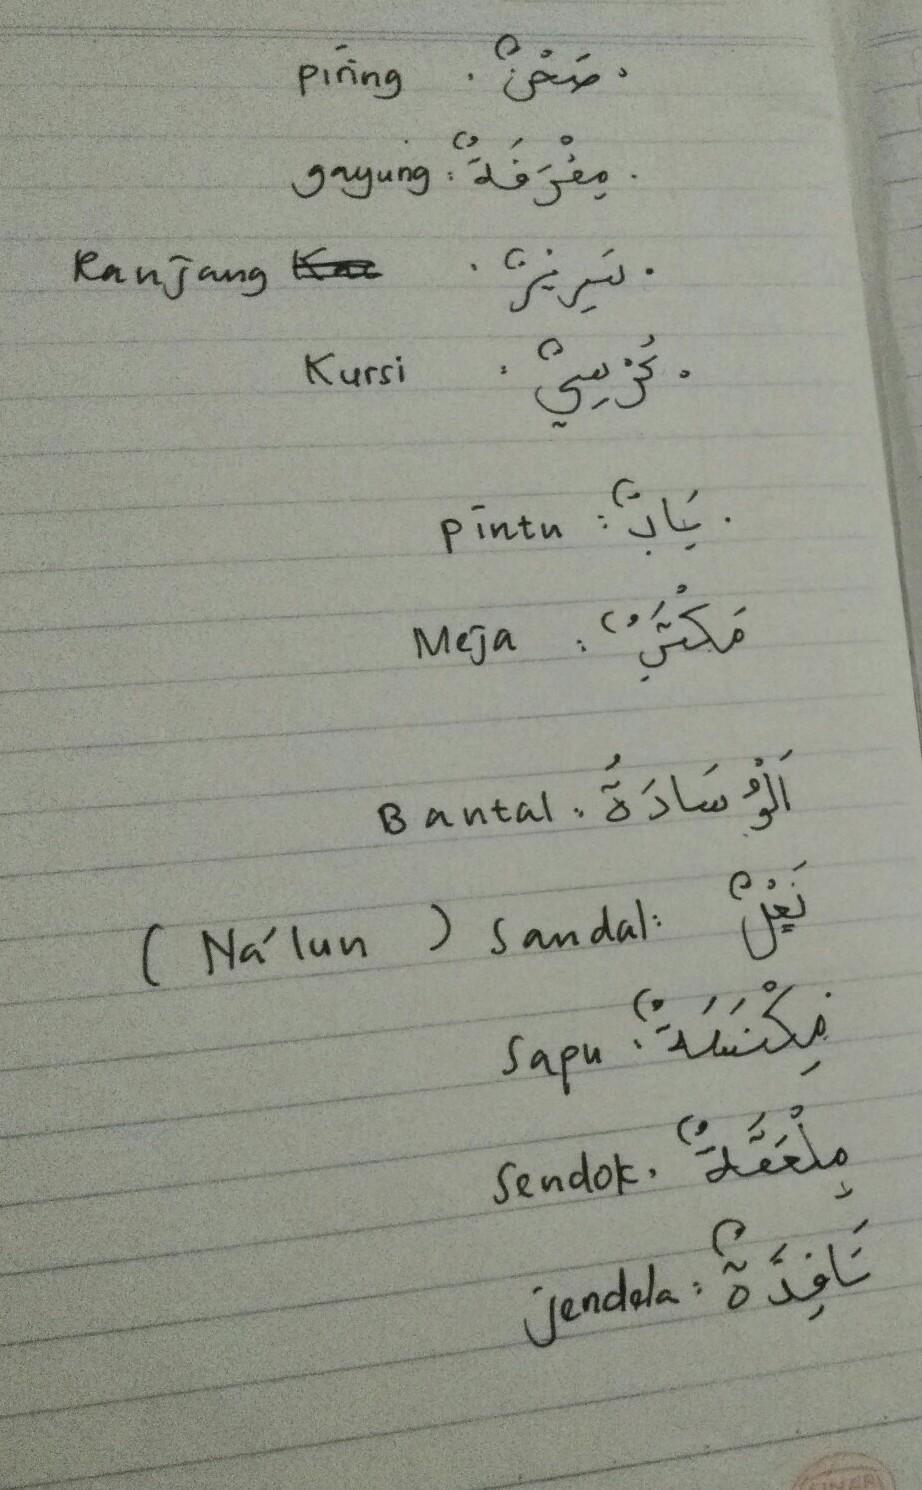 صَحْنٌ : piring
مِغْرَفَةٌ : gayung
سَرِيْرٌ : Ranjang
كُرْسِيٌّ : Kursi
بَابٌ : pintu
مَكْتَبٌ : Meja
اَلْوُسَادَةُ : Bantal
نَعْلٌ : Sandal (Na'lun)
مِكْنَسَةٌ : Sapu
مِلْعَقَةٌ : Sendok
نَافِذَةٌ : jendela